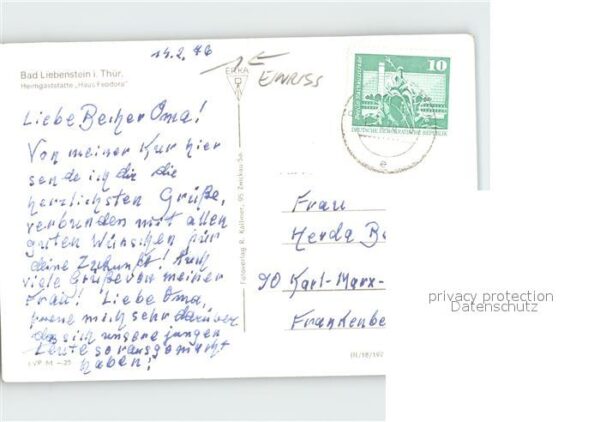 14.2.76
Bad Liebenstein i. Thür.
Heimgaststätte „Haus Feodora"
ERKA
EINRISS
10
DEUTSCHE DEMOKRATISCHE REPUBLIK
Liebe Becher Oma!
Von meiner Kur hier
sende ich dir die
herzlichsten Grüße,
verbunden mit allen
guten Wünschen für
deine Zukunft! Auch
viele Grüße von meiner
Frau! Liebe Oma,
freue mich sehr darüber
das sich unsere jungen
Leute so rausgemacht
haben!
Fotoverlag R. Kallmer, 95 Zwickau-Sa.
Frau
Herda Be
90 Karl-Marx-
Frankenbe
privacy protection
Datenschutz